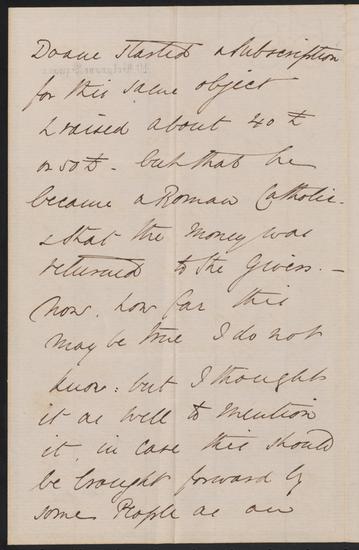 Doane started a Subscription
for this same object
& raised about 40 £
or 50 £. but that he
became a Roman Catholic.
& that the Money was
returned to the Givers. —
Now. how far this
may be true I do not
know: but I thought
it as well to mention
it. in case this should
be brought forward by
some People as an